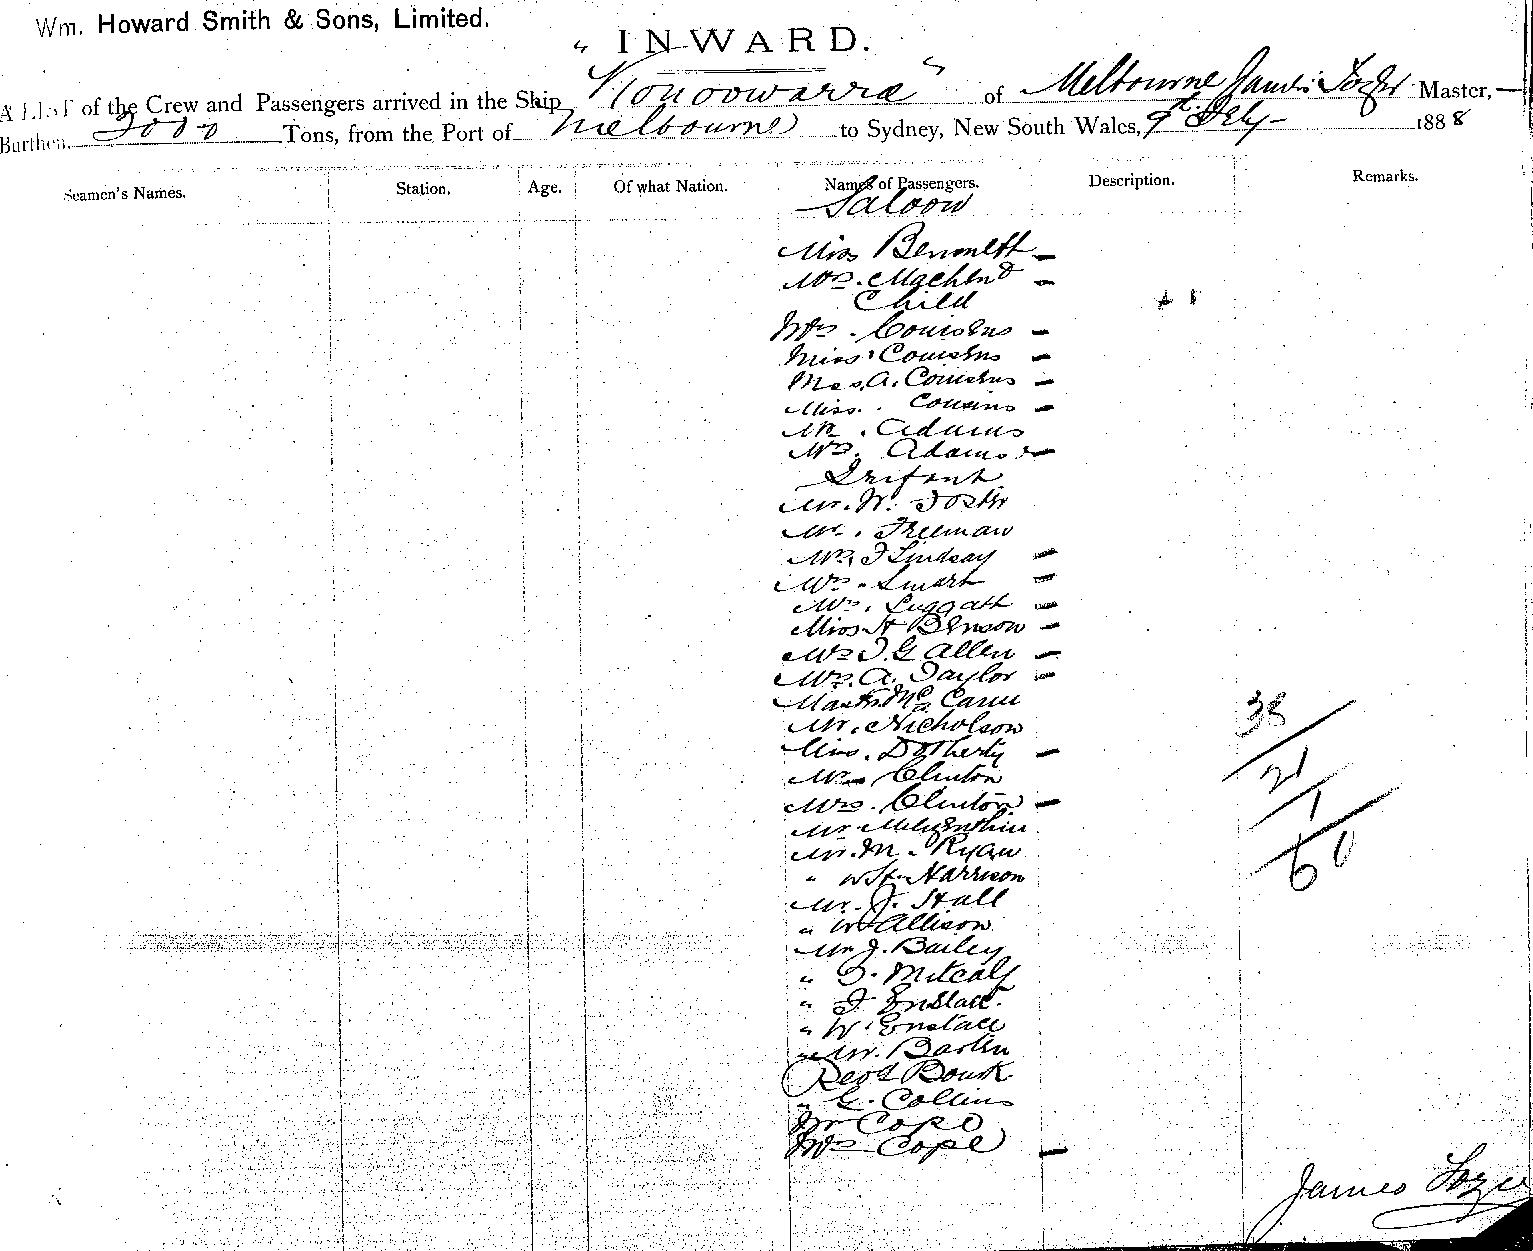 Wm. Howard Smith & Sons, Limited.
INWARD.
A LIST of the Crew and Passengers arrived in the Ship "Konoowarra" of Melbourne James Master,
Burthen, 3000 Tons, from the Port of Melbourne to Sydney, New South Wales, 9th 1888
Seamen's Names. Station. Age. Of what Nation. Names of Passengers. Description. Remarks.
Saloon
Miss Bennett
Mrs.
Child
Mrs. Cousens
Miss Cousens
A. Cousens
Miss. Cousins
Mr. Adams
Mrs. Adams
Infant
Mr. W. Foster
Mr. Freeman
Lindsay
Smart
Luggatt
Miss H Benson
Allen
A. Taylor
Mc
Mr. Nicholson
Dotherty
38
Mr Clinton
21
Mrs. Clinton
1
Mr.
Mr. M. Ryan
60
" Harrison
Mr. J. Hall
" Allison
Mr J. Bailey
" Metcalf
"
" W.
" Mr.
Revd Bourk
" G. Collins
Mr Cope
Mrs Cope
James